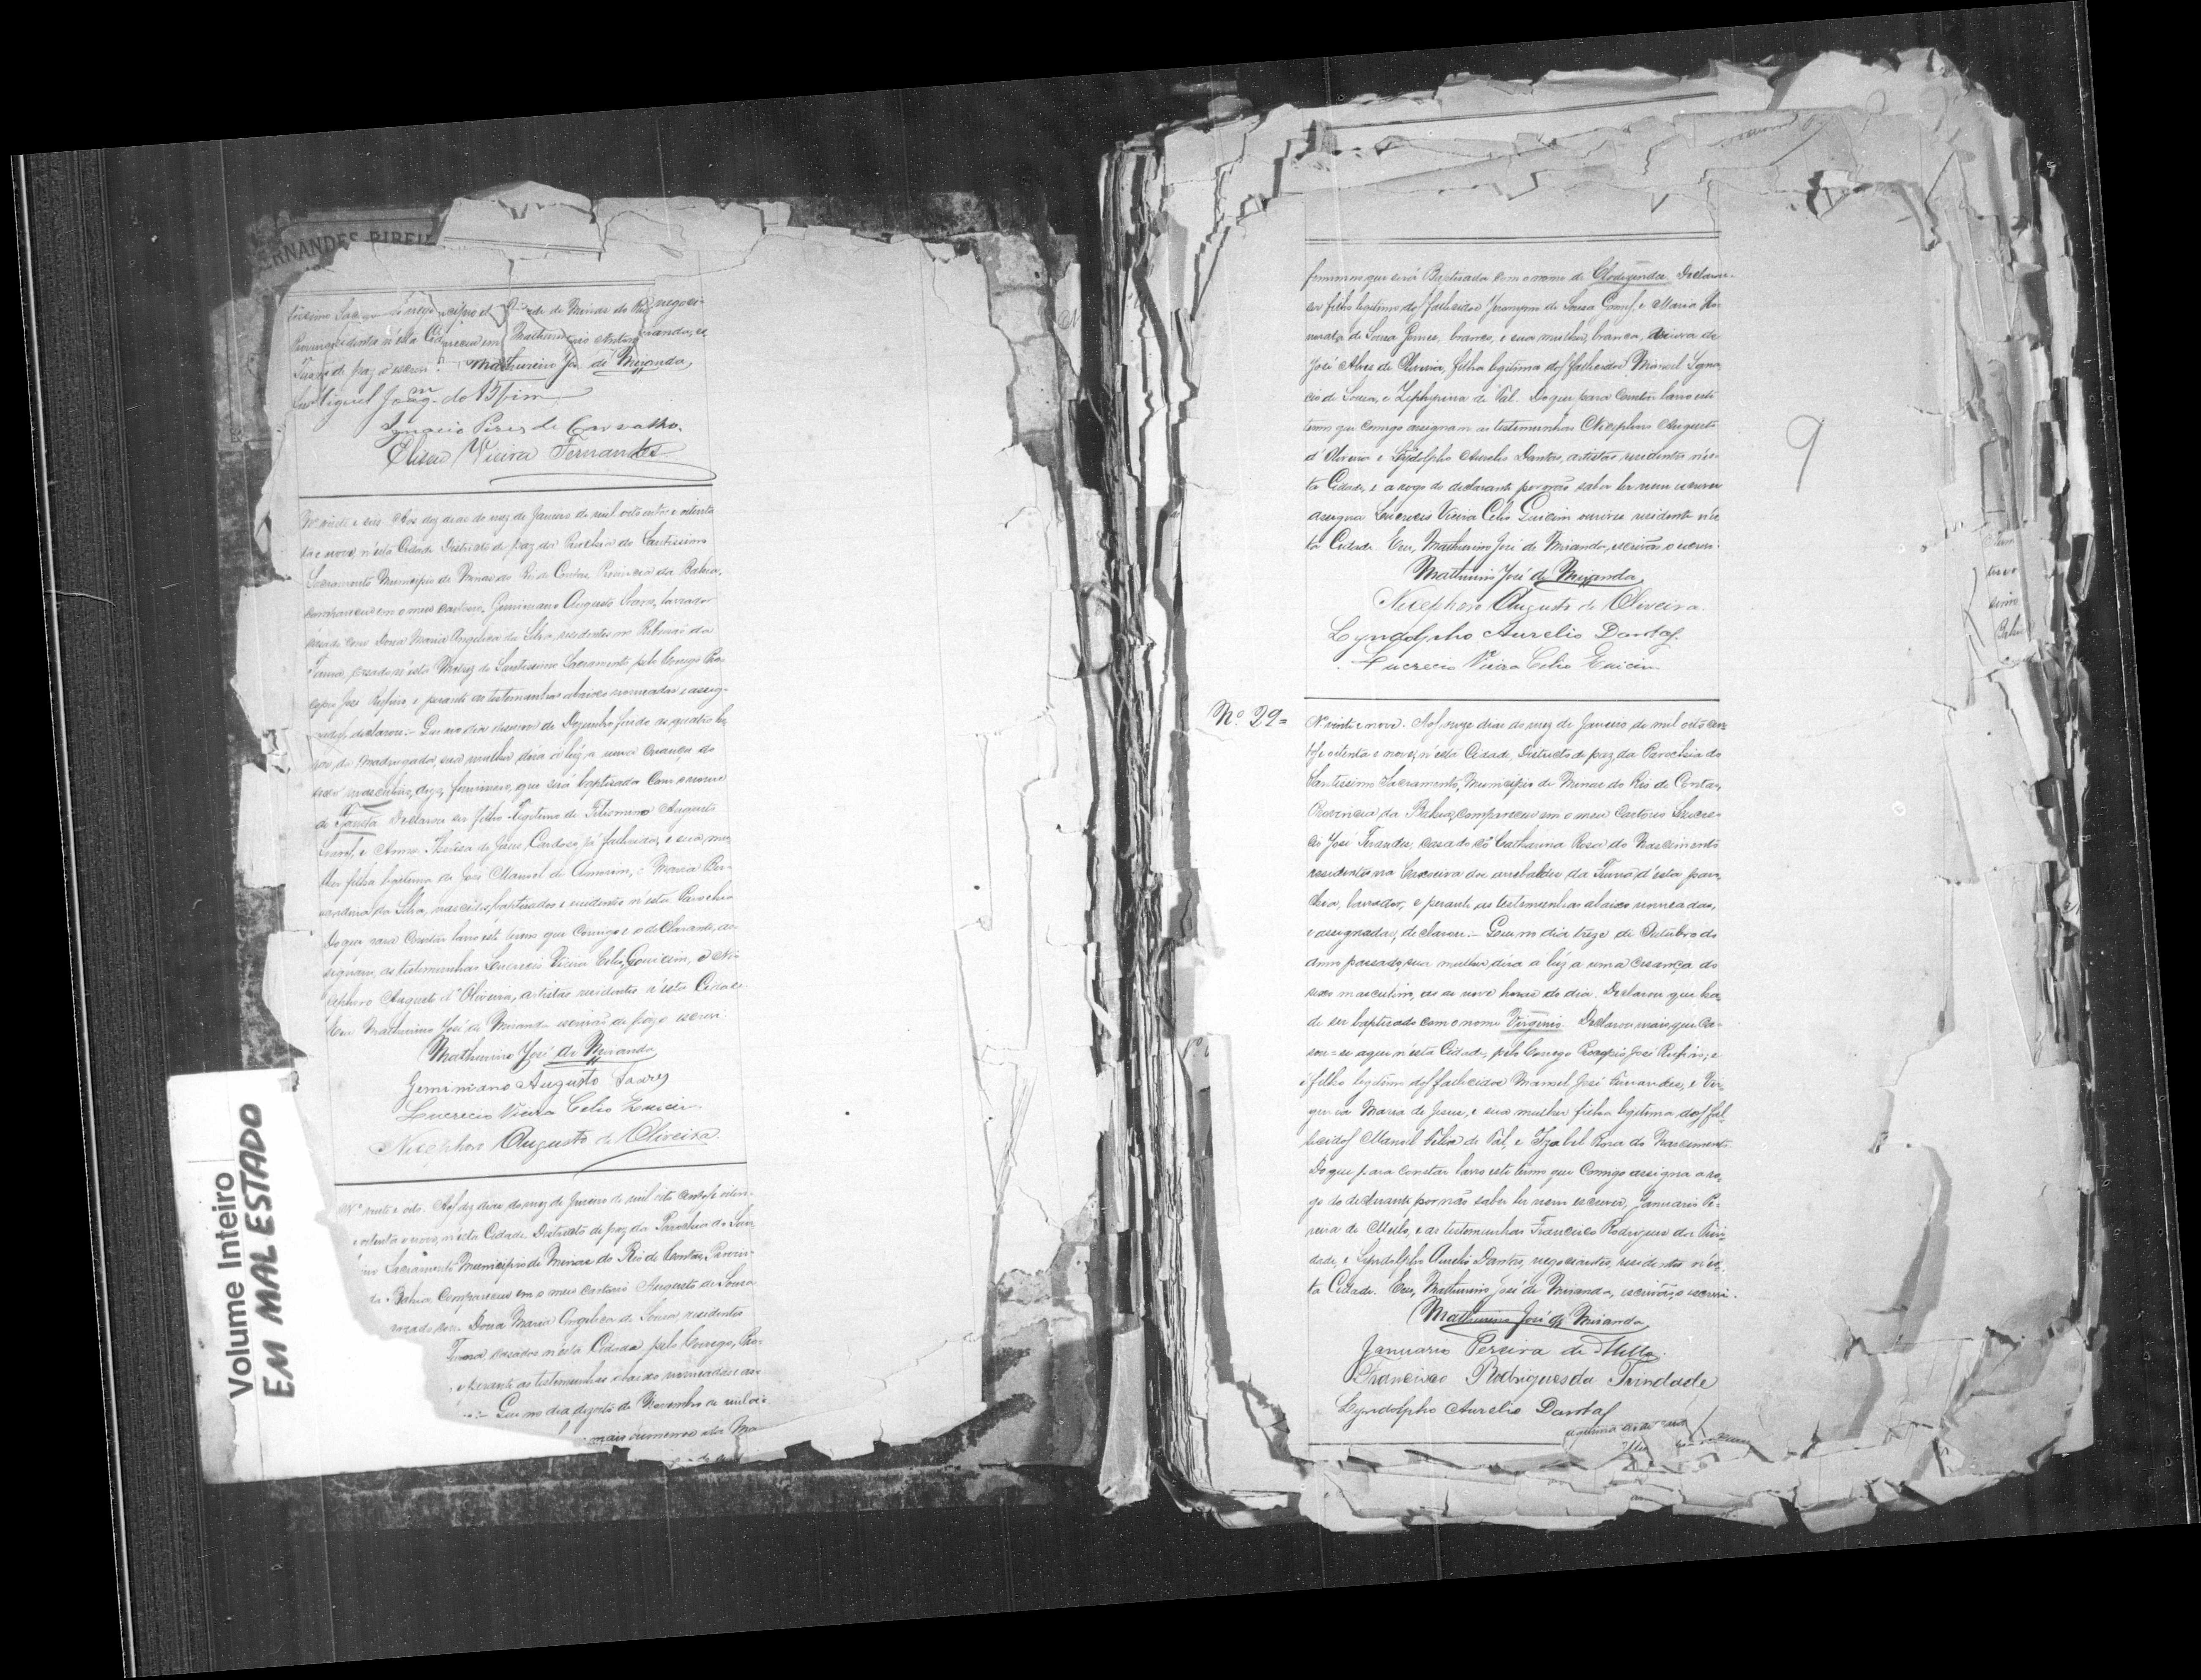 RNANDES RIBEI
Matherino José de Miranda,
Miguel Joaqm. do Bomfim
Ignacio Pires de Carvalho.
Eliseu Vieira Fernandes
Nº vinte e seis. Aos dez dias do mez de Janeiro de mil oito centos e oitenta
ta e nove, n'esta Cidade Districto de paz da Parochia do Santissimo
Sacramento Municipio de Minas do Rio de Contas, Provincia da Bahia,
compareceu em o meu cartorio, Geminiano Augusto Soares, lavrador
casado com Dona Maria Angelica da Silva, residentes no Ribeirão da
Furna, casado n'esta Matriz do Santissimo Sacramento, pelo Conego Pro-
copio José Rufino, e perante as testemunhas abaixo nomeadas e assig-
nadas, declarou:- Que no dia desenove de Dezembro findo as quatro ho-
ras da madrugada, sua mulher dera á luz, a uma criança do
sexo masculino, digo, feminino, que será baptisada com o nome
de Fausta. Declarou ser filho legitimo de Filismino Augusto
Soares, e Anna Theresa de Jesus Cardoso, já fallecidos, e sua mu-
lher filha legitima de José Manoel de Amorim, e Maria Ber-
nardina da Silva, nascidos, baptisados e residentes n'esta Parochia
Do que para constar lavro este termo que comigo e o declarante, as-
signam, as testemunhas Lucrecio Vieira Celio Guicem, e Ni-
cephoro Augusto d'Oliveira, artistas residentes n'esta Cidade
Eu Mathurino José de Miranda escrivão de paz o escrevi.
Mathurino José de Miranda
Geminiano Augusto Soares
Lucrecio Vieira Celio Guicem
Nicephoro Augusto de Oliveira
Nº vinte e oito. Aos dez dias do mez de Janeiro de mil oito centos e oiten-
e oitenta e nove, n'esta Cidade Districto de paz da Parochia do San
imo Sacramento Municipio de Minas do Rio de Contas, Provin-
da Bahia compareceu em o meu cartorio Augusto de Sousa
casado com Dona Maria Angelica de Sousa, residentes
Furna, casados n'esta Cidade pelo Conego, Pro-
, e perante as testemunhas abaixo nomeadas e as-
:- Que no dia dezoito de Novembro de mil oi-
mais ou menos da Ma
Volume Inteiro
EM MAL ESTADO
feminino que será Baptisada com o nome de Clodezinda. Declarou-
ser filho legitimo dos fallecidos Jeronymo de Sousa Gomes, e Maria Ho-
norata de Sousa Gomes, brancos, e sua mulher, branca, viuva de
José Alves de Oliveira, filha legitima dos fallecidos Manoel Igna-
cio de Sousa, e Zephyrina de Val. Do que para constar lavro este
termo que comigo assignam as testemunhas Nicephoro Augusto
d'Oliveira e Lyndolpho Aurelio Dantas, artistas residentes n'es-
ta Cidade, e a rogo do declarante por não saber ler nem escrever
assigna Lucrecio Vieira Celio Guicem ourives residente n'es-
ta Cidade. Eu, Mathurino José de Miranda, escrivão o escrevi.
Mathurino José de Miranda
Nicephoro Augusto de Oliveira.
Lyndolpho Aurelio Dantas.
Lucrecio Vieira Celio Guicem
9
Nº. 29=
Nº vinte e nove. Aos onze dias do mez de Janeiro de mil oito cen-
tos e oitenta e nove, n'esta Cidade, Districto de paz da Parochia do
Santissimo Sacramento, Municipio de Minas do Rio de Contas,
Provincia da Bahia, compareceu em o meu Cartorio Lucre-
cio José Fernandes, casado cõ Catharina Rosa do Nascimento
residentes na Cacoeira dos arrebaldes da Furna d'esta paro-
chia, lavrador, e perante as testemunhas abaixo nomeadas,
e assignadas, declarou:- Que no dia treze de Outubro do
anno passado, sua mulher, dera a luz a uma creança do
sexo masculino, as as nove horas do dia. Declarou que ha
de ser baptisado com o nome Virginio. Declarou mais que ca-
sou-se aqui n'esta Cidade, pelo Conego Procopio José Rufino; e
é filho legitimo dos fallecidos Manoel José Fernandes, e Vir-
gencia Maria de Jesus, e sua mulher filha legitima dos fal-
lecidos Manoel Silva de Val, e Izabel Rosa do Nascimento
Do que para constar lavro este termo que comigo assigna a ro-
go do declarante por não saber ler nem escrever, Januario Pe-
reira de Mello, e as testemunhas Francisco Rodrigues da Trin-
dade, e Lyndolpho Aurelio Dantas, negociantes, residentes n'es-
ta Cidade. Eu, Mathurino José de Miranda, escrivão, o escrevi.
Mathurino José de Miranda,
Januario Pereira de Mello.
Francisco Rodrigues da Trindade
Lyndolpho Aurelio Dantas